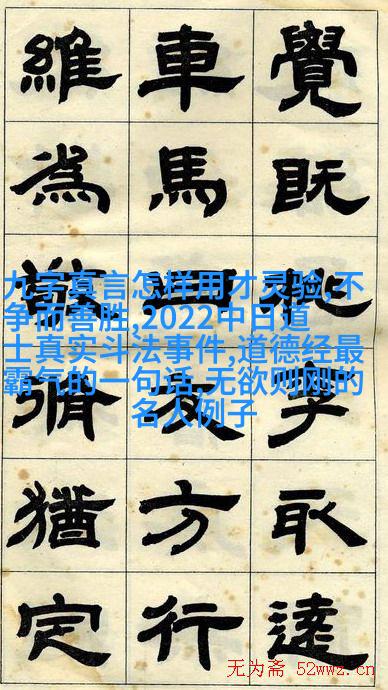 覺既李取
車馬友方行
維為脩猶定
九字真言怎样用才灵验,不
争而善胜,2022中日道
士真实斗法事件,道德经最
霸气的一句话,无欲则刚的
名人例子
无为斋 52wwz.cn